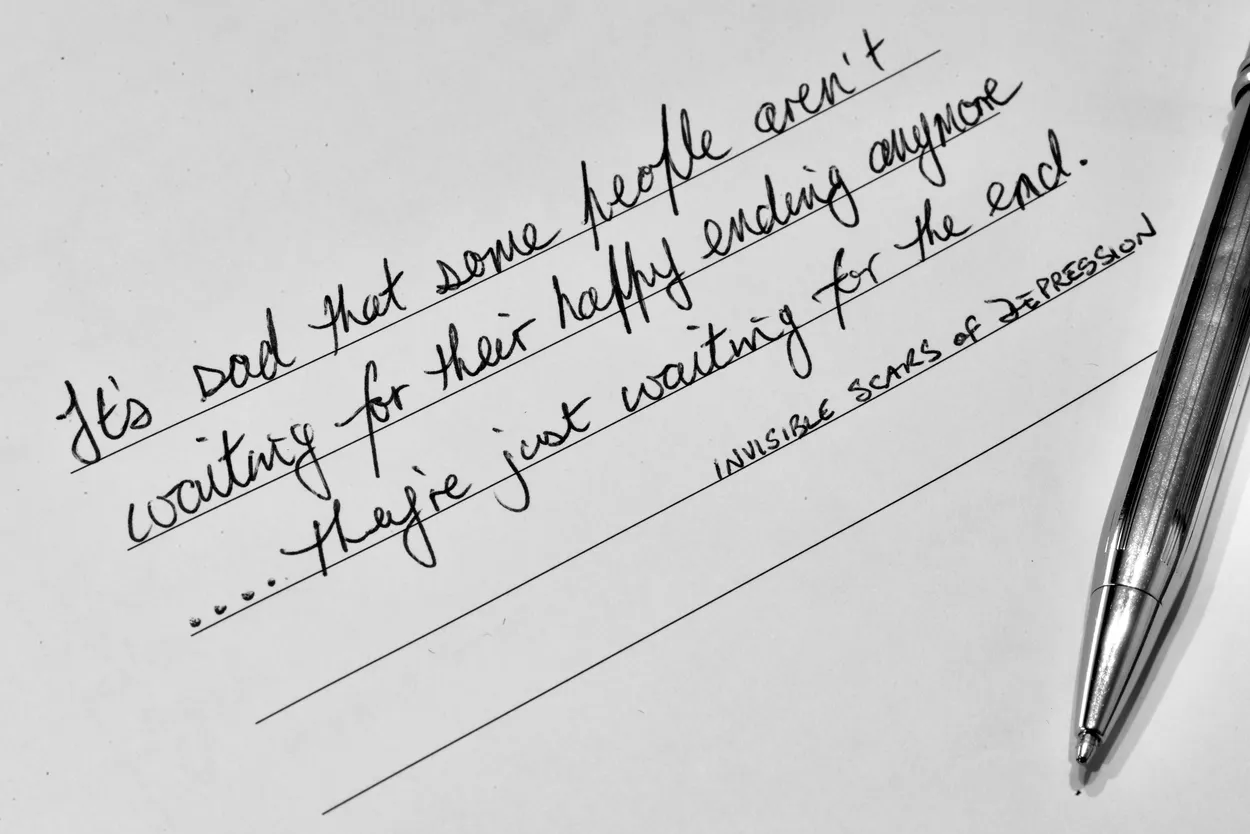 It's sad that some people aren't
waiting for their happy ending anymore
.... they're just waiting for the end.
INVISIBLE SCARS of DEPRESSION